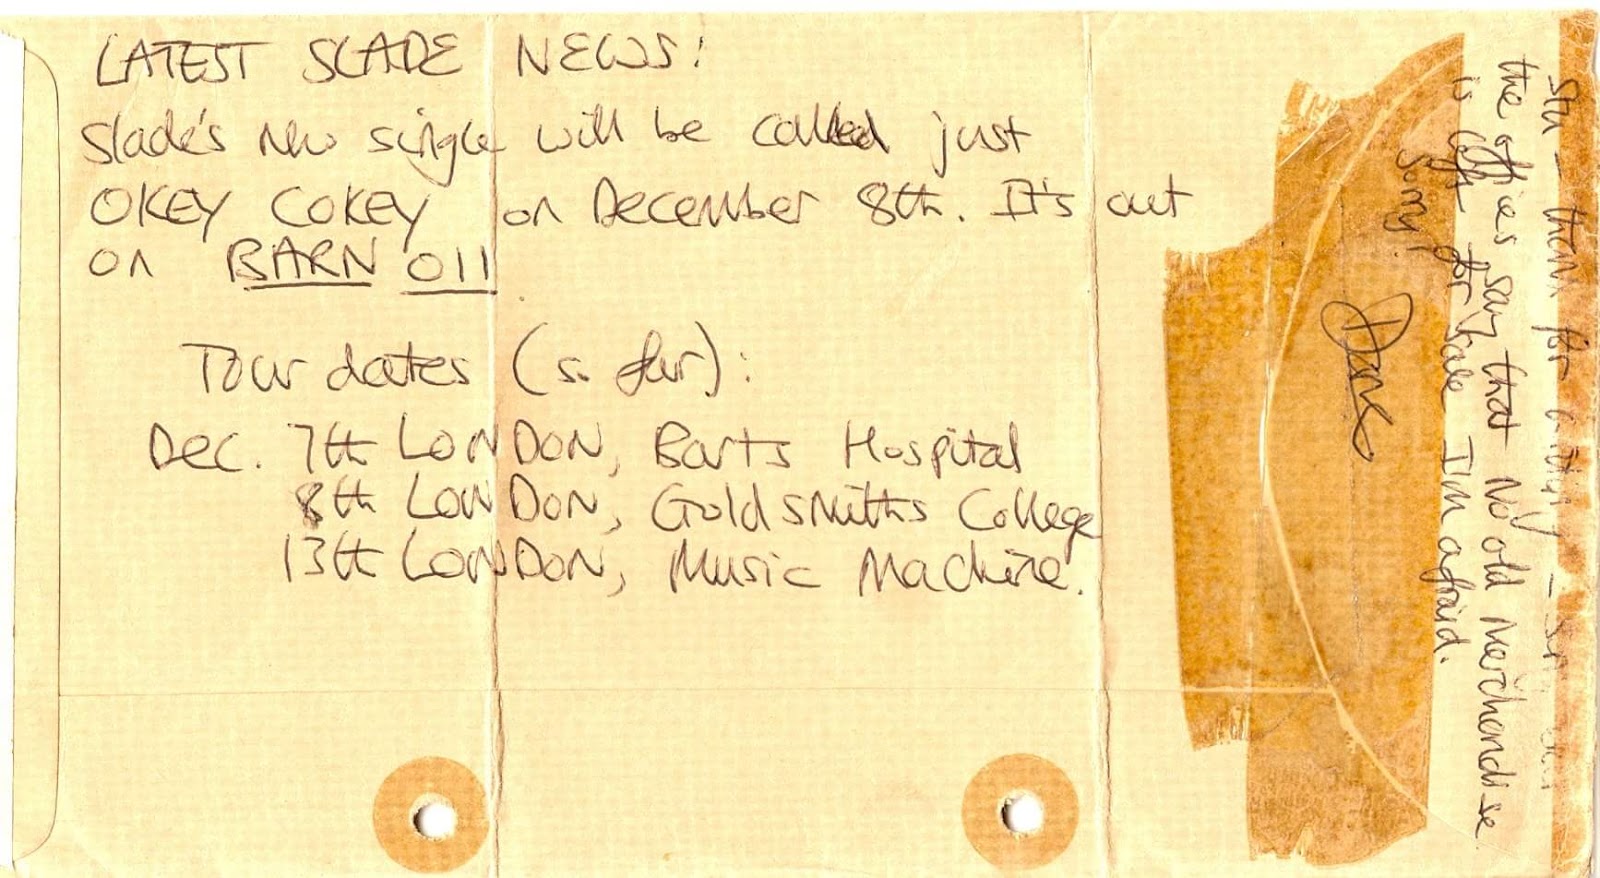 LATEST SLADE NEWS:
Slade's new single will be called just
OKEY COKEY on December 8th. It's out
on BARN 011
Tour dates (so far):
Dec. 7th LONDON, Barts Hospital
8th LONDON, Goldsmiths College
13th LONDON, Music Machine.
Stu - thanx for
the offices say that no old merchandise
is left for sale I'm afraid.
Sorry!